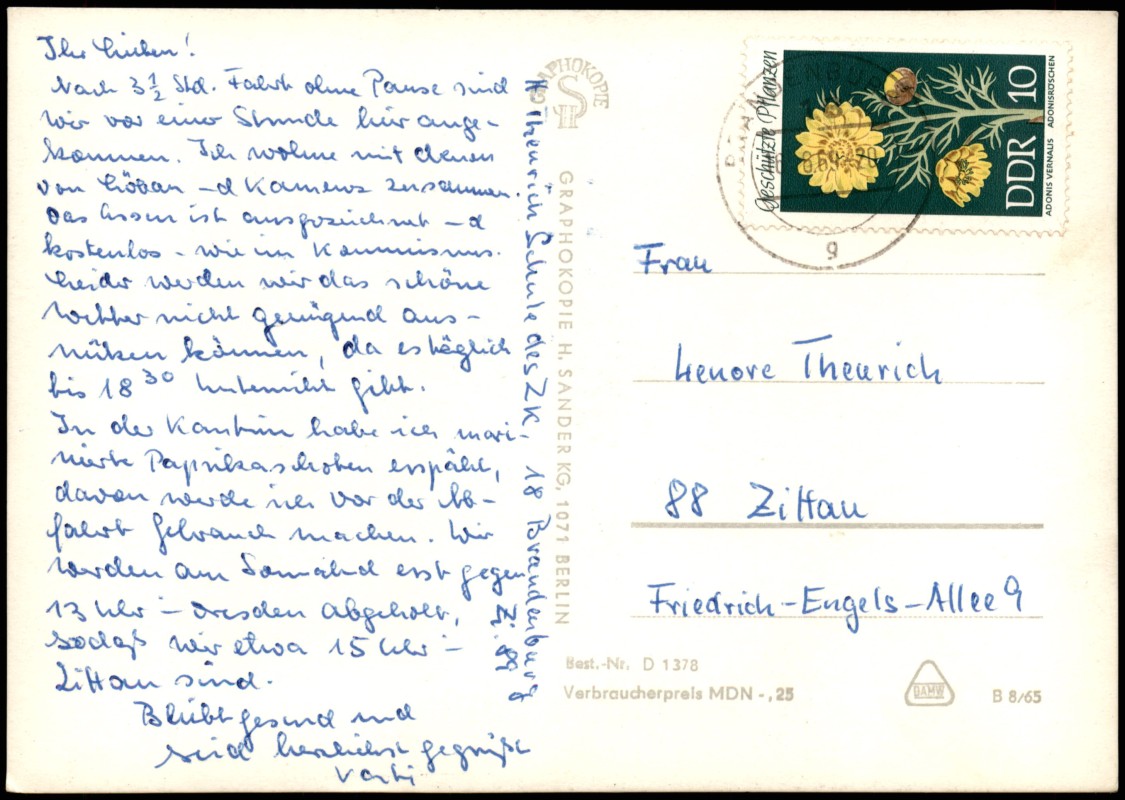 Ihr Lieben!
Nach 3 ½ Std. Fahrt ohne Pause sind
wir vor einer Stunde hier ange-
kommen. Ich wohne mit denen
von Löbau -d Kamenz zusammen.
Das Essen ist ausgezeichnet -d
kostenlos - wie im Kommismus.
Leider werden wir das schöne
Wetter nicht genügend aus-
nützen können, da es täglich
bis 18³⁰ Unterricht gibt.
In der Kantine habe ich mari-
nierte Paprikaschoten erspäht,
davon werde ich vor der Ab-
fahrt Gebrauch machen. Wir
werden am Sonnabend erst gegen
13 Uhr - Dresden abgeholt,
sodaß wir etwa 15 Uhr -
Zittau sind.
Bleibt gesund und
seid herzlichst gegrüßt
Vati
Theurich Schule des ZK 18 Brandenburg
Zi. 89
GRAPHOKOPIE
H S
GRAPHOKOPIE H. SANDER KG, 1071 BERLIN
Geschützte Pflanzen
DDR 10
ADONIS VERNALIS ADONISRÖSCHEN
g
Frau
Lenore Theurich
88 Zittau
Friedrich-Engels-Allee 9
Best.-Nr. D 1378
Verbraucherpreis MDN -,25
DAMW
B 8/65